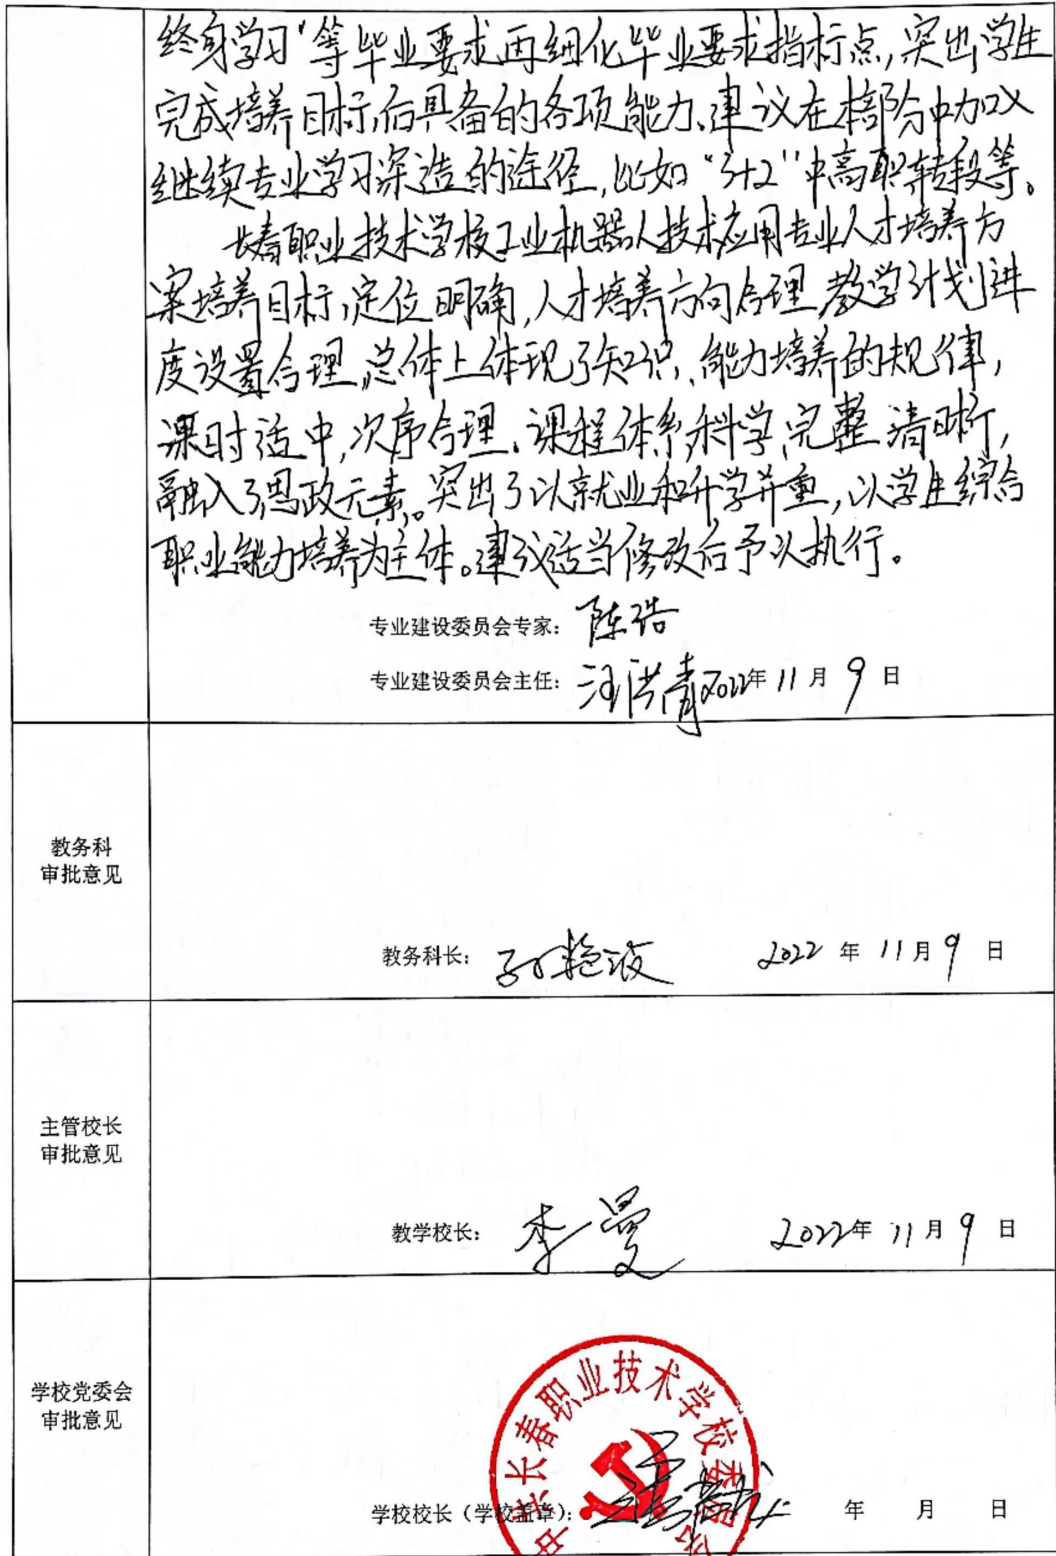 终身学习"等毕业要求再细化毕业要求指标点,突出学生
完成培养目标后具备的各项能力、建议在本部分中加以
继续专业学习深造的途径,比如"3+2"中高职转段等。
长春职业技术学校工业机器人技术应用专业人才培养方
案培养目标,定位明确,人才培养方向合理,教学计划进
度设置合理,总体上体现了知识、能力培养的规律,
课时适中,次序合理、课程体系科学、完整、清晰,
融入了思政元素。突出了以就业和升学并重,以学生综合
职业能力培养为主体。建议适当修改后予以执行。
专业建设委员会专家: 陈浩
专业建设委员会主任: 汪洪青 2022年 11月 9日
教务科
审批意见
教务科长: 孙艳波 2022 年 11月 9 日
主管校长
审批意见
教学校长: 李曼 2022年 11月 9 日
学校党委会
审批意见
中共长春职业技术学校委员会
学校校长(学校盖章): 年 月 日